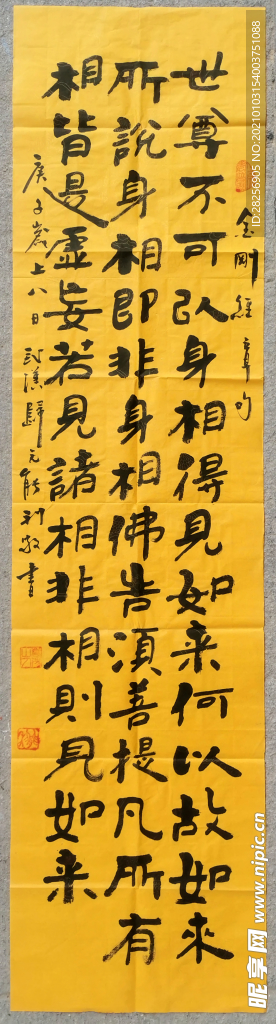 金剛經章句
世尊不可以身相得見如来何以故如來
所說身相即非身相佛告須菩提凡所有
相皆是虛妄若見諸相非相則見如来
庚子嵗上八日武漢歸元能利敬書
ID:28256905 NO:20210103154003751088
昵享网 www.nipic.cn